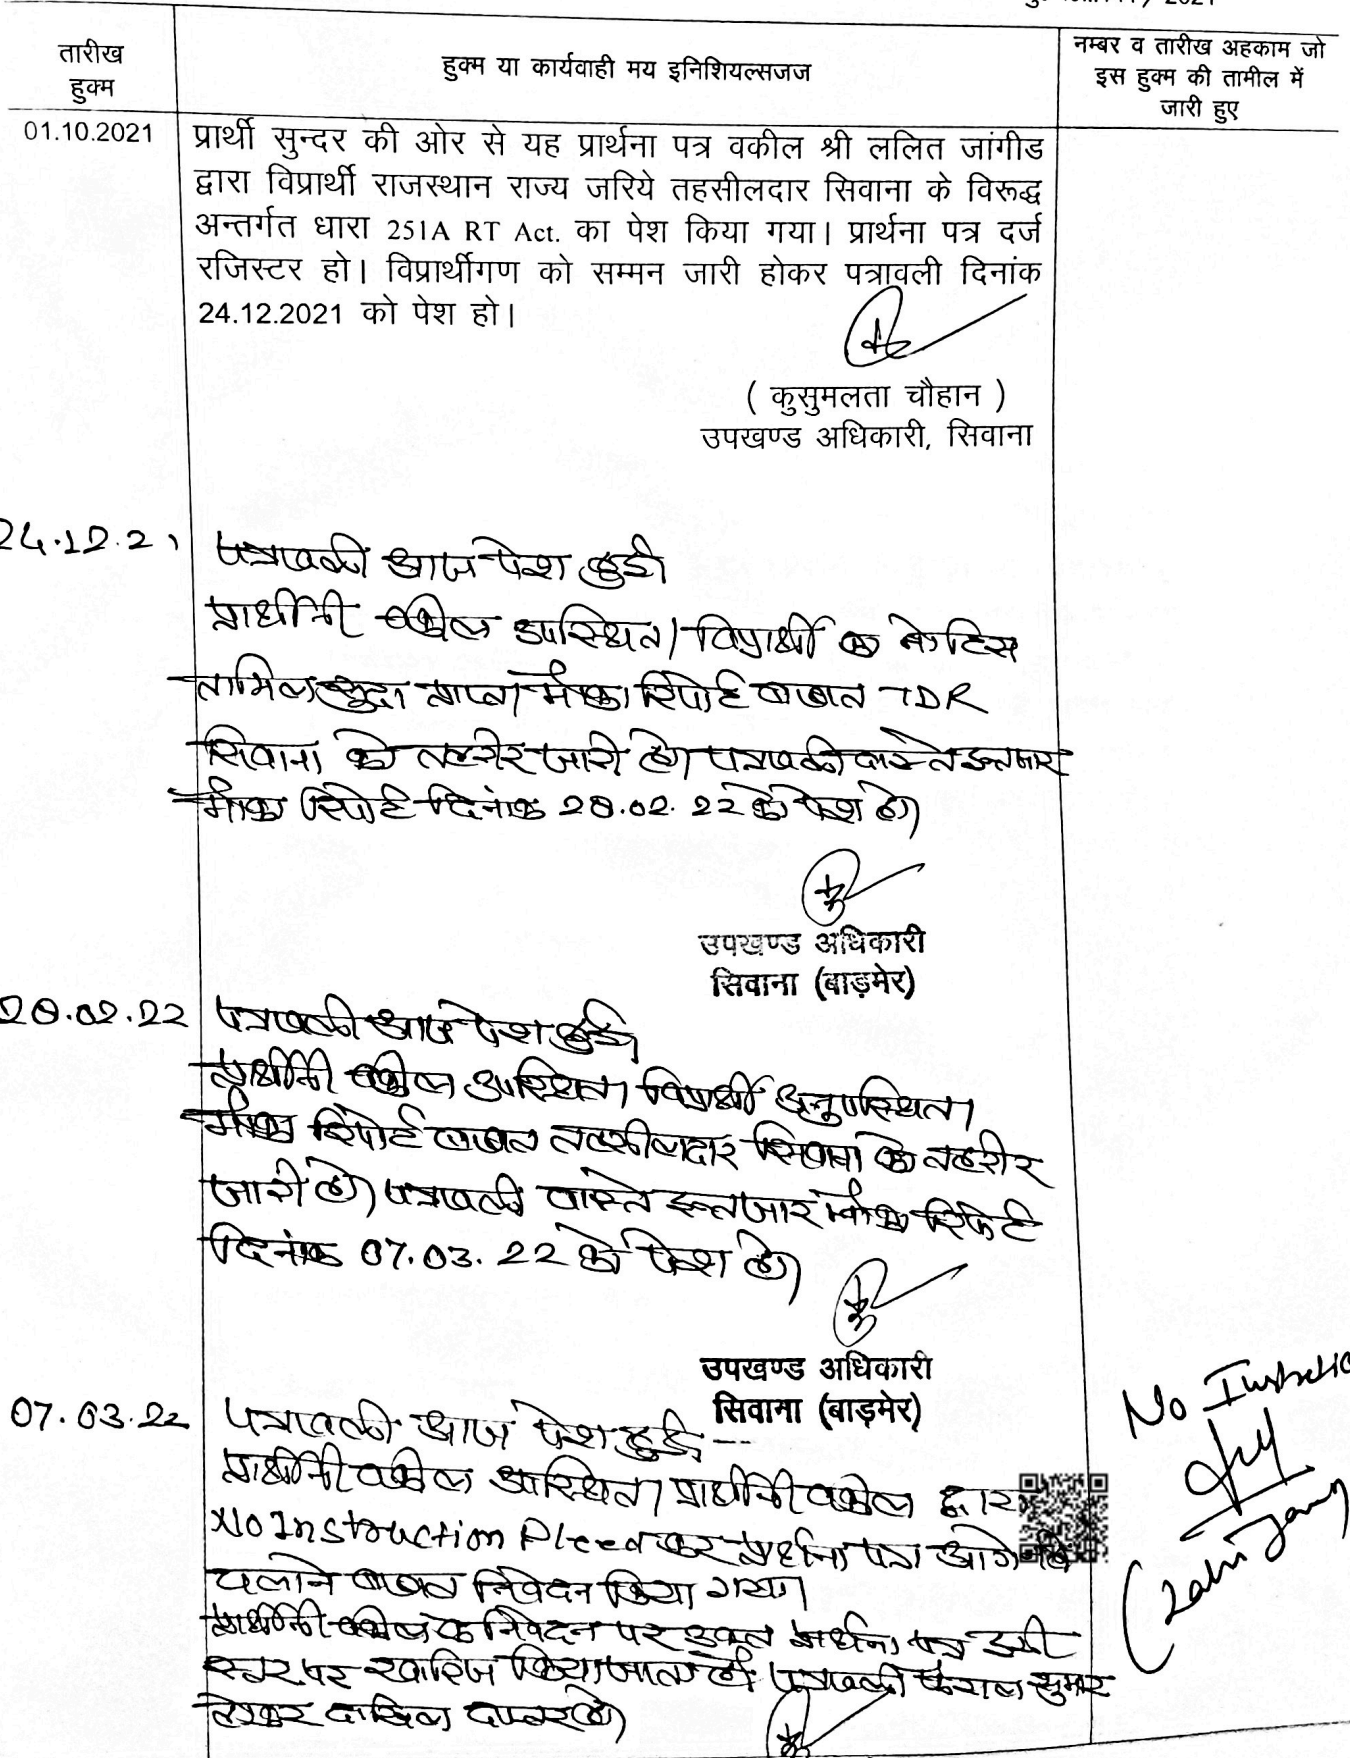 2021
तारीख
हुक्म
हुक्म या कार्यवाही मय इनिशियल्सजज
नम्बर व तारीख अहकाम जो
इस हुक्म की तामील में
जारी हुए
01.10.2021
प्रार्थी सुन्दर की ओर से यह प्रार्थना पत्र वकील श्री ललित जांगीड
द्वारा विप्रार्थी राजस्थान राज्य जरिये तहसीलदार सिवाना के विरूद्ध
अन्तर्गत धारा 251A RT Act. का पेश किया गया। प्रार्थना पत्र दर्ज
रजिस्टर हो। विप्रार्थीगण को सम्मन जारी होकर पत्रावली दिनांक
24.12.2021 को पेश हो।
( कुसुमलता चौहान )
उपखण्ड अधिकारी, सिवाना
24.12.21
पत्रावली आज पेश हुई।
प्रार्थीनी वकील उपस्थित। विप्रार्थी का नोटिस
तामिल शुदा प्राप्त। मौका रिपोर्ट बाबत TDR
सिवाना को तहरीर जारी हो। पत्रावली वास्ते इन्तजार
मौका रिपोर्ट दिनांक 28.02.22 को पेश हो।
उपखण्ड अधिकारी
सिवाना (बाड़मेर)
28.02.22
पत्रावली आज पेश हुई।
प्रार्थीनी वकील उपस्थित। विप्रार्थी अनुपस्थित।
मौका रिपोर्ट बाबत तहसीलदार सिवाना को तहरीर
जारी हो। पत्रावली वास्ते इन्तजार मौका रिपोर्ट
दिनांक 07.03.22 को पेश हो।
उपखण्ड अधिकारी
सिवाना (बाड़मेर)
07.03.22
पत्रावली आज पेश हुई।
प्रार्थीनी वकील उपस्थित। प्रार्थीनी वकील द्वारा
No Instruction Pleed कर प्रार्थना पत्र आगे
चलाने बाबत निवेदन किया गया।
प्रार्थीनी वकील के निवेदन पर उक्त प्रार्थना पत्र इसी
स्तर पर खारिज किया जाता है। पत्रावली फैसल शुमार
होकर दाखिल दफ्तर हो।
No